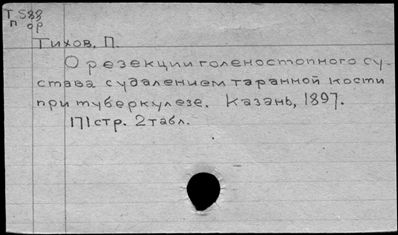 Т 588
п ор
Тихов, П.
О резекции голеностопного су-
става с удалением таранной кости
при туберкулезе. Казань, 1897.
171 стр. 2 табл.